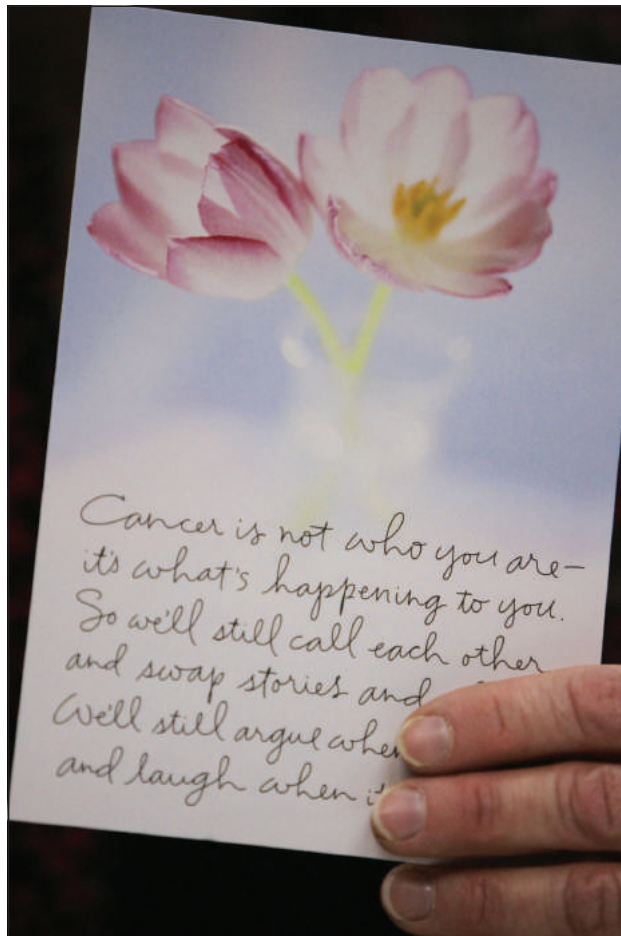 Cancer is not who you are—
it's what's happening to you.
So we'll still call each other
and swap stories and
We'll still argue when
and laugh when